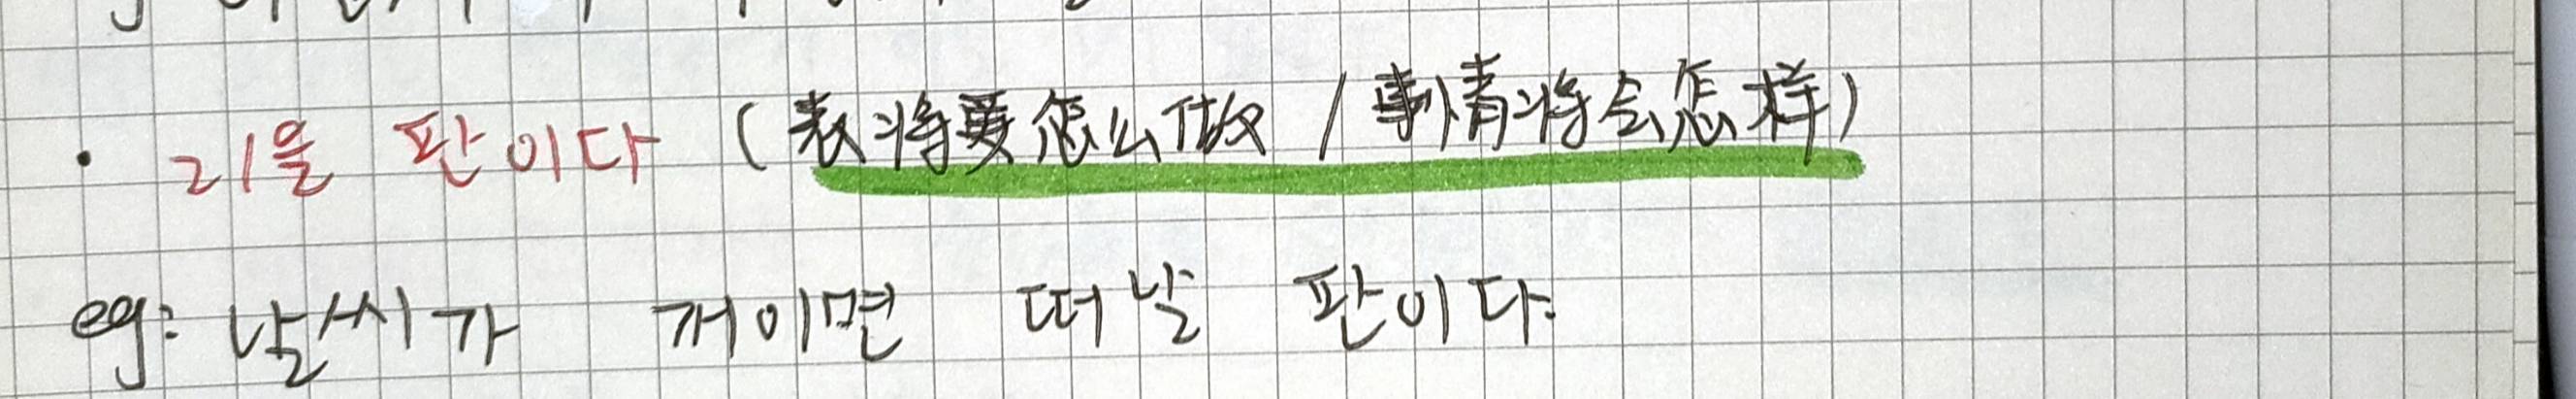 · ㄹ/을 판이다 (表将要怎么做 / 事情将会怎样)
eg: 날씨가 개이면 떠날 판이다.